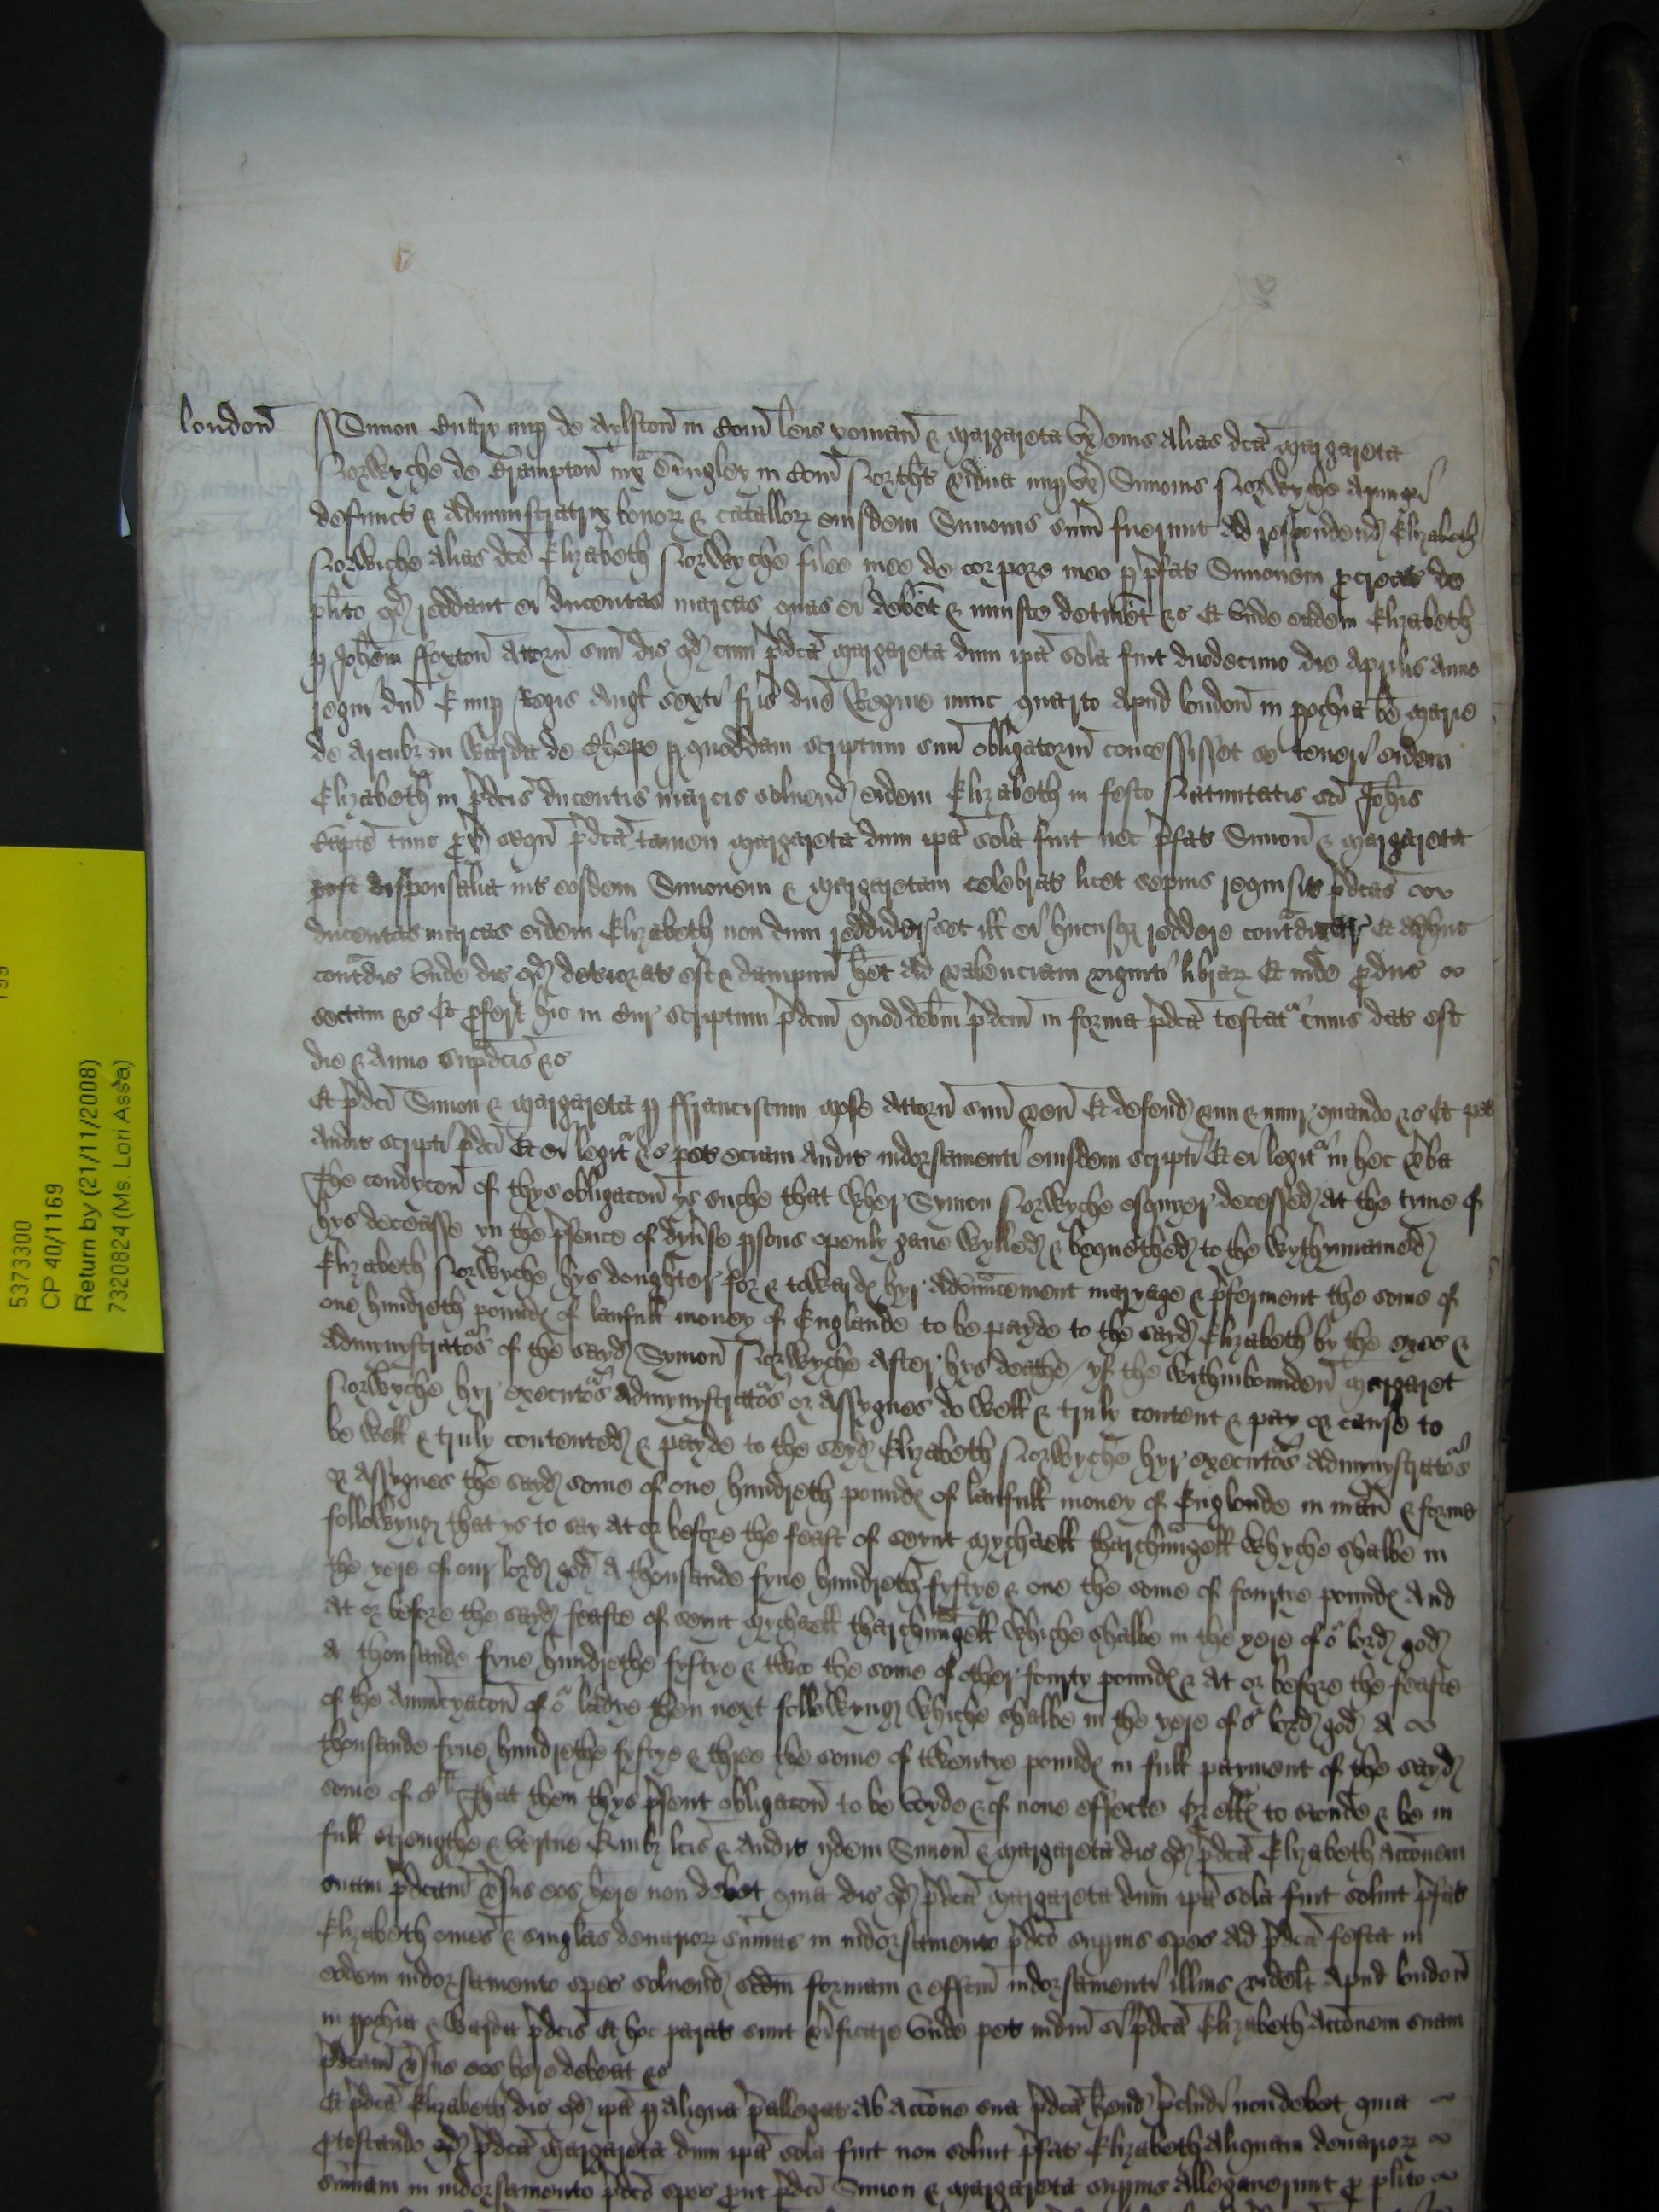 london̄ Simon Entry nup de Aylston̄ in Com̄ leic yoman̄ & Margareta vx̄ eius alias dc̄a Margareta
Norwyche de Brampton̄ iux̄ Dyngley in Com̄ Northt vidua nup vx̄ Simonis Norwyche Armigi
defuncti & Administratrix bonoꝝ & catalloꝝ eiusdem Simonis sum̄ fuerunt ad respondend Elizabeth
Norwiche alias dc̄e Elizabeth Norwyche filee mee de corpore meo p p̄fat Simonem ꝓcreat de
pl̄ito qd reddant ei ducentas marcas quas ei debent & iniuste detinent &c Et vnde eadem Elizabeth
p Joh̄em ffoxton̄ Attorn̄ suū dic qd cum p̄dc̄a Margareta dum ip̄a sola fuit duodecimo die Aprilis anno
regni dn̄i E nup Regis Angl sexti fr̄is dn̄e Regine nunc quarto apud london̄ in pochia bē Marie
de Arcubꝫ in Warda de Chepe p quoddam scriptum suū obligatoriū concessisset se teneri eidem
Elizabeth in p̄dc̄is ducentis marcis soluend eidem Elizabeth in festo Natiuitatis sc̄i Joh̄is
Bapte tunc ꝓx̄ seqū p̄dc̄a tamen Margareta dum ip̄a sola fuit nec p̄fat Simon̄ & Margareta
post disponsalia int eosdem Simonem & Margaretam celebrat licet sepius requisit p̄dc̄as
ducentas marcas eidem Elizabeth non dum reddider set ill ei hucusqꝫ reddere contᵃdixer Et adhuc
contᵃdic vnde dic qd deteriorat est & dampnū h̄et ad valenciam viginti libraꝝ Et inde ꝓduc
sectam &c Et ꝓfert hic in Cur scriptum p̄dc̄m quod debm̄ p̄dc̄m in forma p̄dc̄a testatʳ cuius dat est
die & anno sup̄dc̄is &c
Et p̄dc̄i Simon & Margareta p ffranciscum Mose Attorn̄ suū ven̄ Et defend vim & iniur quando &c Et pet
audit scripti p̄dc̄i Et ei legitʳ &c pet eciam audit indorsamenti eiusdem scripti Et ei legitʳ in hec v̄ba
The condycon̄ of thys obligacon̄ ys suche that wher Symon Norwyche esquyer decessed at the tyme of
hys deceasse yn the p̄sence of dyūse psons openly gaue wylled & bequethed to the wythynnamed
Elizabeth Norwyche hys doughter for & toward hyr aduauncement maryage & p̄ferment the some of
one hundreth pound of laufull money of Englande to be payde to the sayd Elizabeth by the exec &
admynystratoʳs of the sayd Symon Norwyche after hys deathe yf the withinbounden Margaret
Norwyche hyr executoʳs admynystratoʳs or assygnes do well & truly content & pay or cause to
be well & truly contented & payde to the seyd Elizabeth Norwyche hyr executoʳs admynystratoʳs
or assygnes the sayd some of one hundreth pound of laufull money of Englonde in man̄ & forme
followyng that ys to say at or before the feast of seynt Mychaell tharchaungell whyche shalbe in
the yere of our lord god a thousande fyue hundreth fyftye & one the some of fourtye pound And
at or before the sayd feaste of seint Mychaell tharchaungell whiche shalbe in the yere of oʳ lord god
a thousande fyue hundrethe fyftye & two the some of other fourty pound & at or before the feaste
of the Annūcyacon̄ of oʳ ladye then next followyng whiche shalbe in the yere of oʳ lord god a
thousande fyue hundrethe fyftye & three the some of twentye pound in full payment of the sayd
some of cˡⁱ That then thys p̄sent obligacon̄ to be voyde & of none effecte Or ell to stonde & be in
full strengthe & vertue Quibꝫ lc̄is & audit ijdem Simon̄ & Margareta dic qd p̄dc̄a Elizabeth acc̄onem
suam p̄dc̄am v̄sus eos h̄ere non debet quia dic qd p̄dc̄a Margareta dum ip̄a sola fuit soluit p̄fat
Elizabeth om̄es & singlas denarioꝝ sūmas in indorsamento p̄dc̄o supius spec ad p̄dc̄a festa in
eodem indorsamento spec soluend scdm̄ formam & effc̄m indorsamenti illius videlt apud london̄
in pochia & Warda p̄dc̄is Et hoc parat sunt v̄ificare vnde pet iudm̄ si p̄dc̄a Elizabeth acc̄onem suam
p̄dc̄am v̄sus eos h̄ere debeat &c
Et p̄dc̄a Elizabeth dic qd ip̄a p aliqua p̄allegat ab acc̄one sua p̄dc̄a h̄end p̄cludi non debet quia
ꝓtestando qd p̄dc̄a Margareta dum ip̄a sola fuit non soluit p̄fat Elizabeth aliquam denarioꝝ
sūmam in indorsamento p̄dc̄o spec ꝓut p̄dc̄i Simon & Margareta supius allegauerunt ꝓ pl̄ito
5373300
CP 40/1169
Return by (21/11/2008)
7320824 (Ms. Lori Assa)